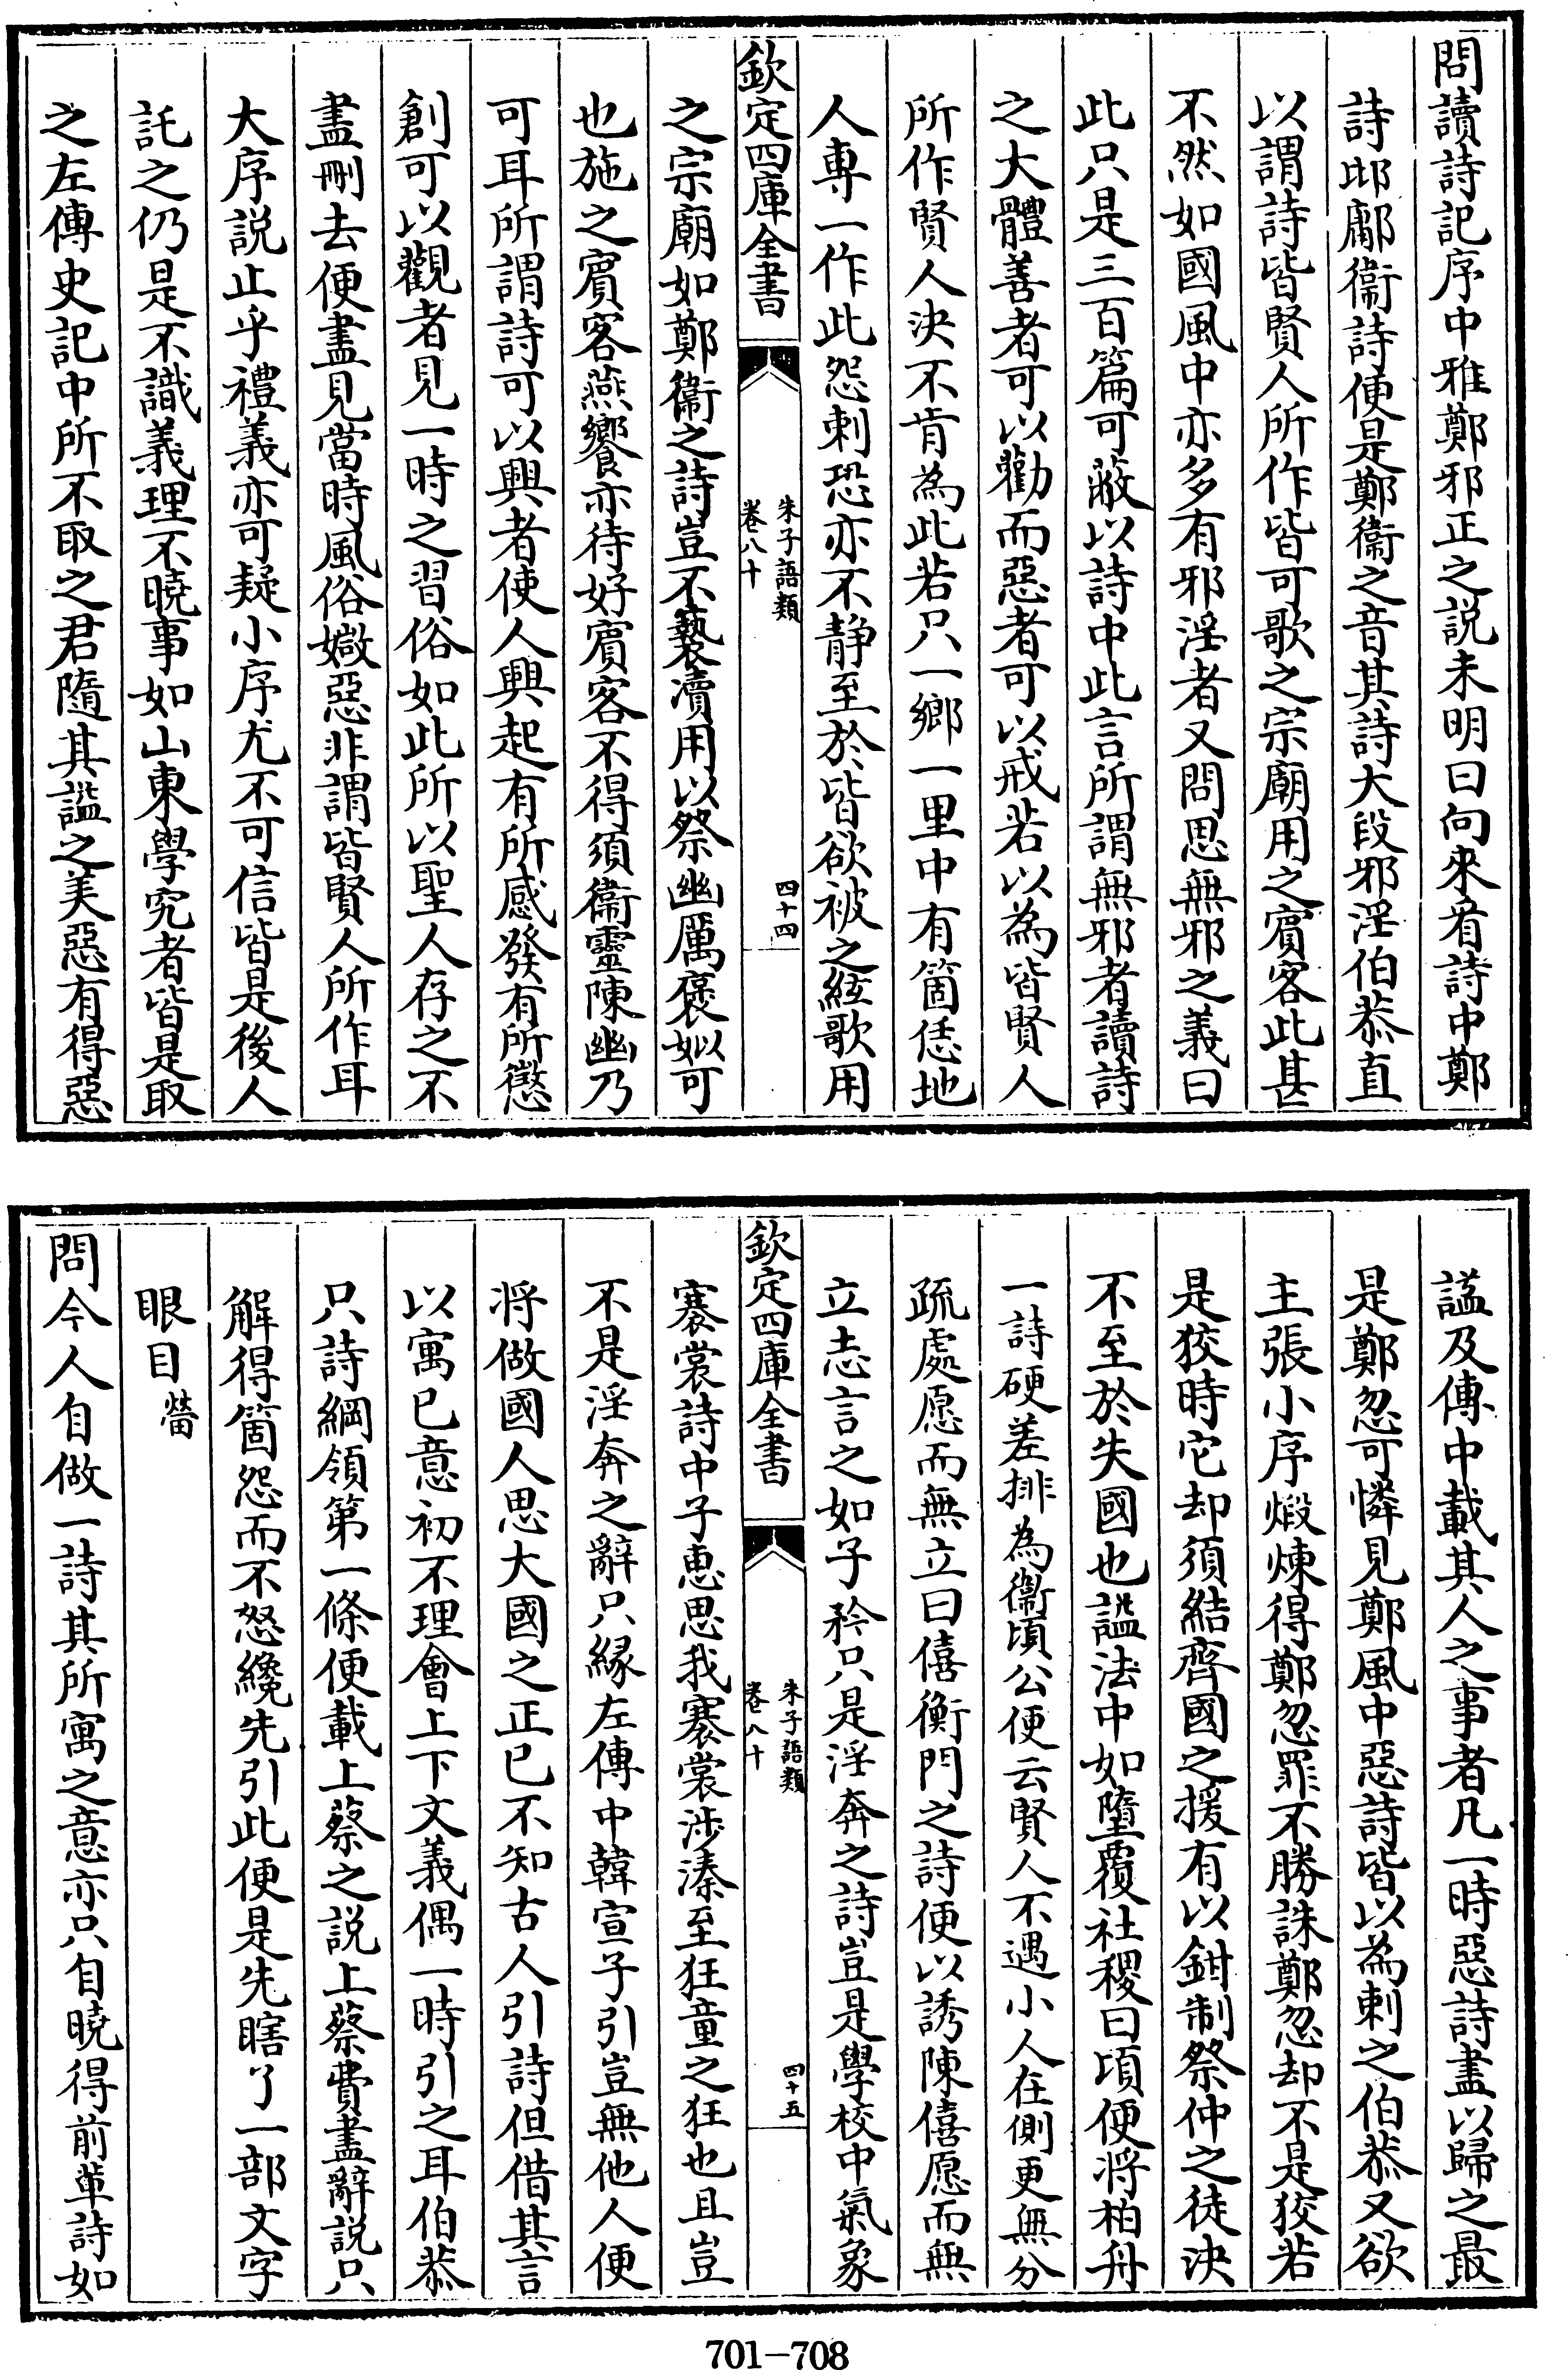 問讀詩記序中雅鄭邪正之説未明曰向來看詩中鄭
詩邶鄘衞詩便是鄭衞之音其詩大段邪淫伯恭直
以謂詩皆賢人所作皆可歌之宗廟用之賓客此甚
不然如國風中亦多有邪淫者又問思無邪之義曰
此只是三百篇可蔽以詩中此言所謂無邪者讀詩
之大體善者可以勸而惡者可以戒若以為皆賢人
所作賢人決不肯為此若只一鄉一里中有箇恁地
人専一作此怨刺恐亦不静至於皆欲被之絃歌用
欽定四庫全書
朱子語類
卷八十
四十四
之宗廟如鄭衞之詩豈不褻瀆用以祭幽厲褒姒可
也施之賓客燕饗亦待好賓客不得須衞靈陳幽乃
可耳所謂詩可以興者使人興起有所感發有所懲
創可以觀者見一時之習俗如此所以聖人存之不
盡刪去便盡見當時風俗媺惡非謂皆賢人所作耳
大序説止乎禮義亦可疑小序尤不可信皆是後人
託之仍是不識義理不曉事如山東學究者皆是取
之左傳史記中所不取之君隨其諡之美惡有得惡
諡及傳中載其人之事者凡一時惡詩盡以歸之最
是鄭忽可憐見鄭風中惡詩皆以為刺之伯恭又欲
主張小序煅煉得鄭忽罪不勝誅鄭忽却不是狡若
是狡時它却須結齊國之援有以鉗制祭仲之徒決
不至於失國也諡法中如墮覆社稷曰頃便將柏舟
一詩硬差排為衞頃公便云賢人不遇小人在側更無分
疏處愿而無立曰僖衡門之詩便以誘陳僖愿而無
立志言之如子衿只是淫奔之詩豈是學校中氣象
欽定四庫全書
朱子語類
卷八十
四十五
褰裳詩中子惠思我褰裳涉溱至狂童之狂也且豈
不是淫奔之辭只緣左傳中韓宣子引豈無他人便
將做國人思大國之正已不知古人引詩但借其言
以寓已意初不理會上下文義偶一時引之耳伯恭
只詩綱領第一條便載上蔡之説上蔡費盡辭説只
解得箇怨而不怒纔先引此便是先瞎了一部文字
眼目㽦
問今人自做一詩其所寓之意亦只自曉得前輩詩如
701-708